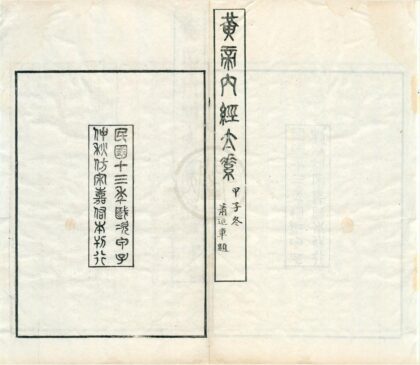 黃帝內經太素
甲子冬
題
民國十三年歲次甲子
仲秋仿宋嘉祐本刊行